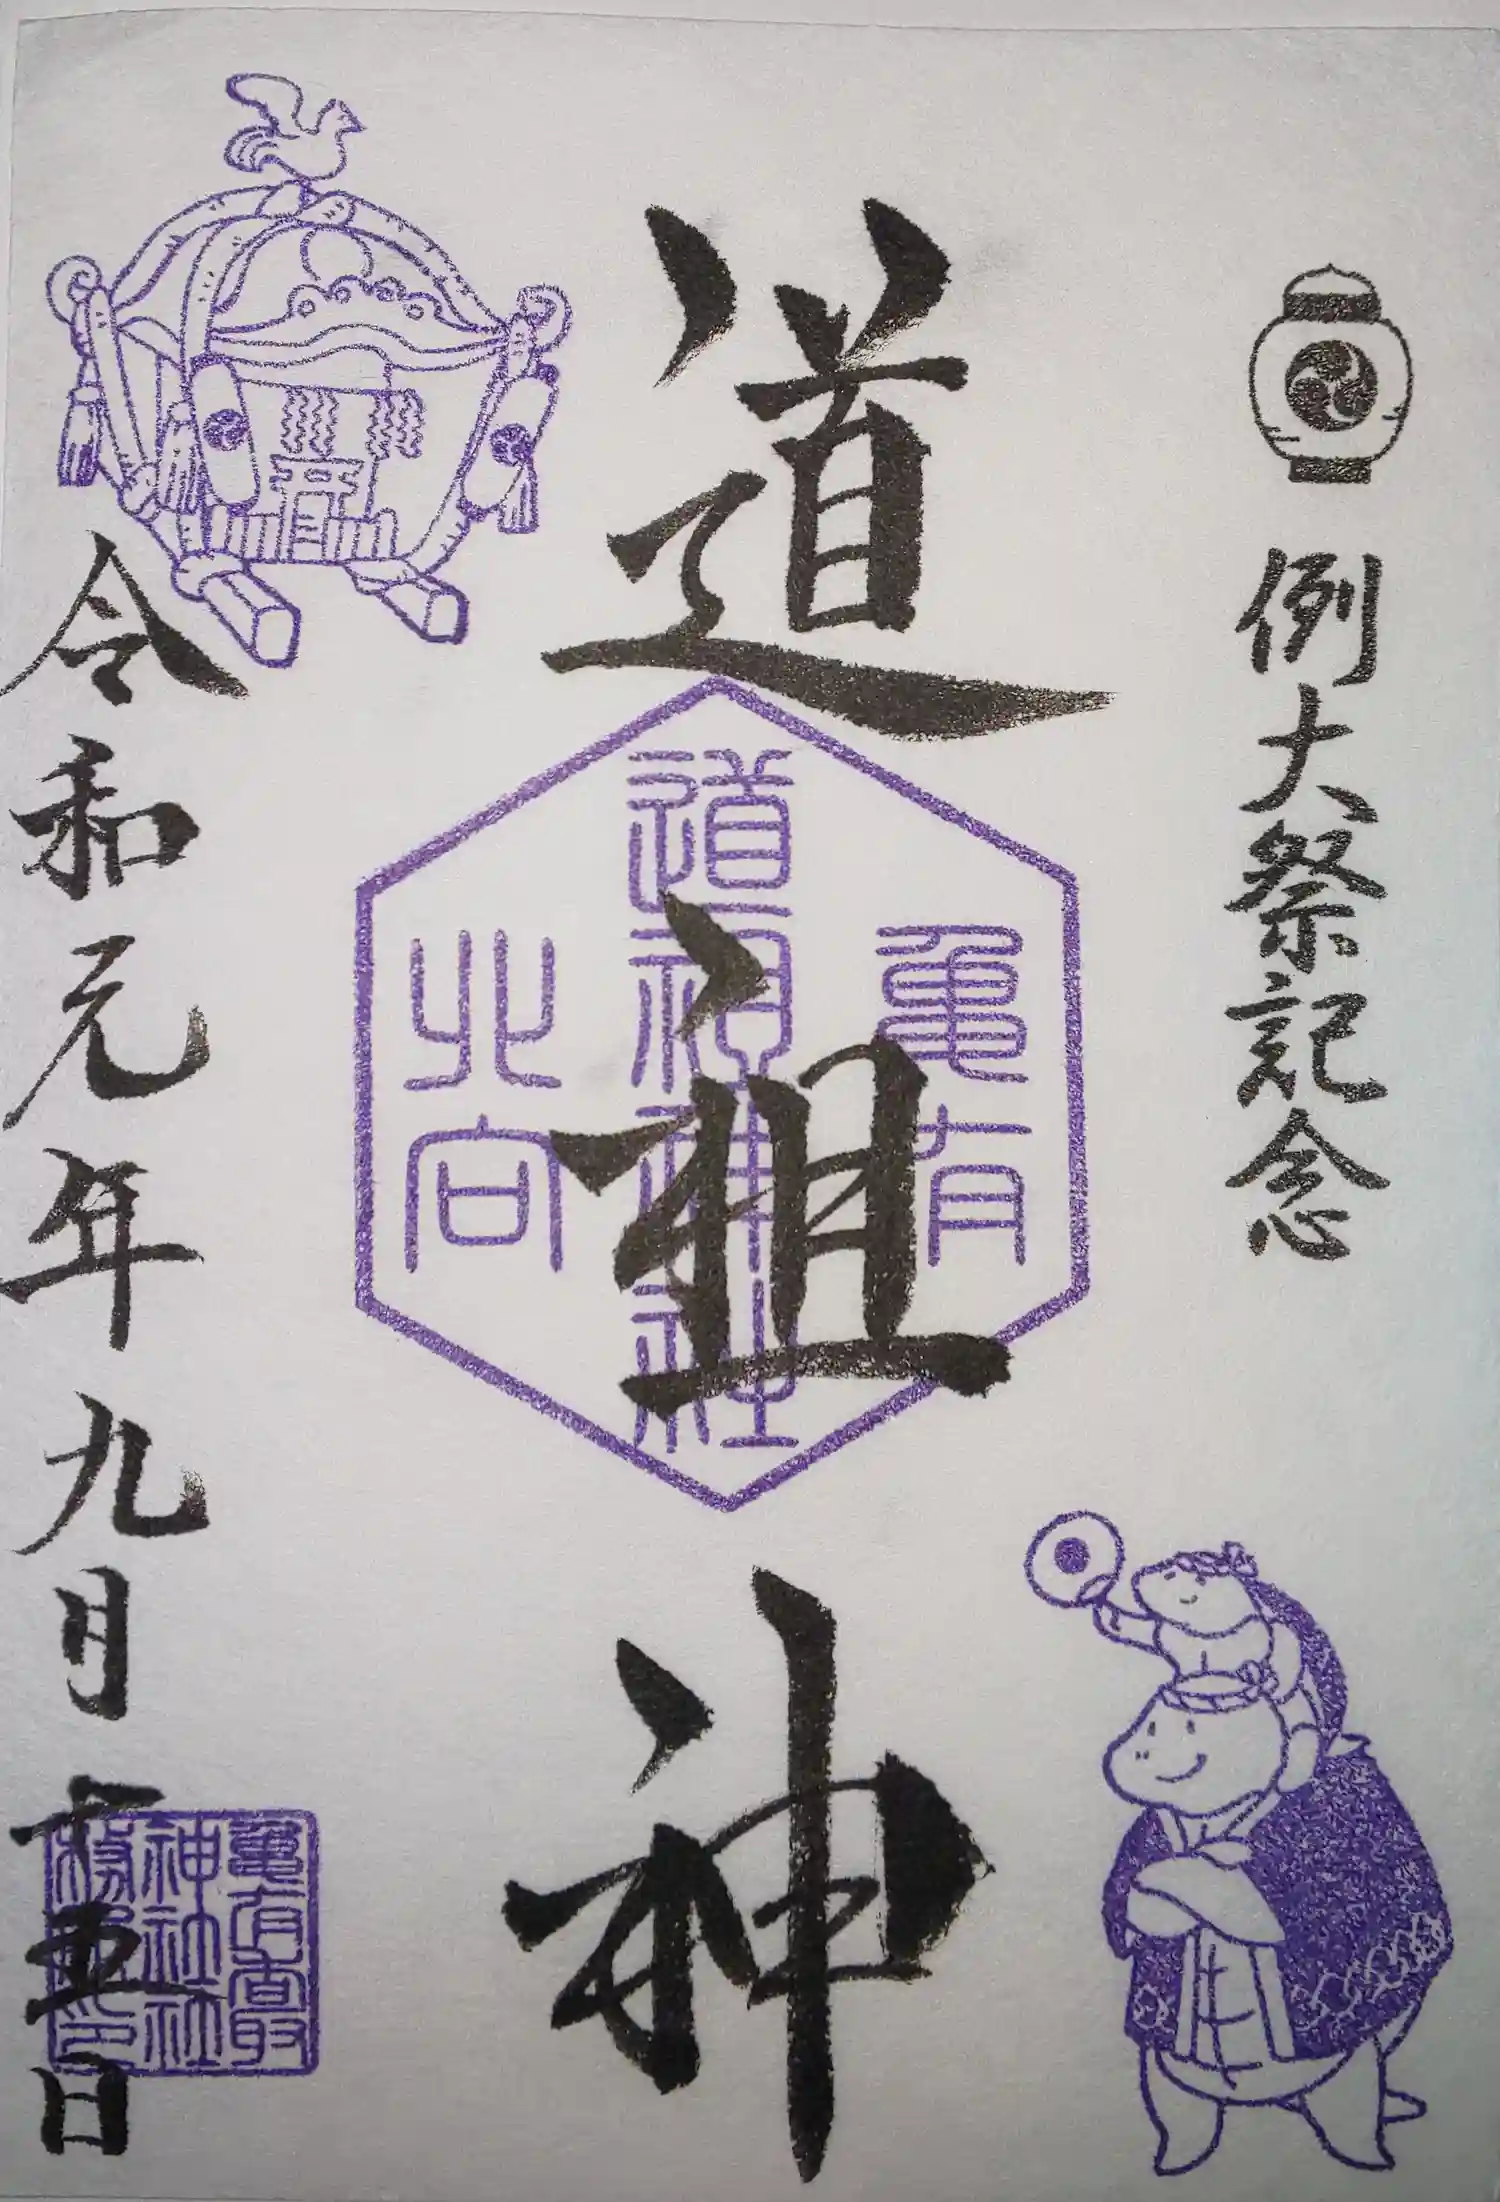 例大祭記念
道祖神
亀有
道祖神社
北向
令和元年九月十五日
亀有香取
神社社
務所之印